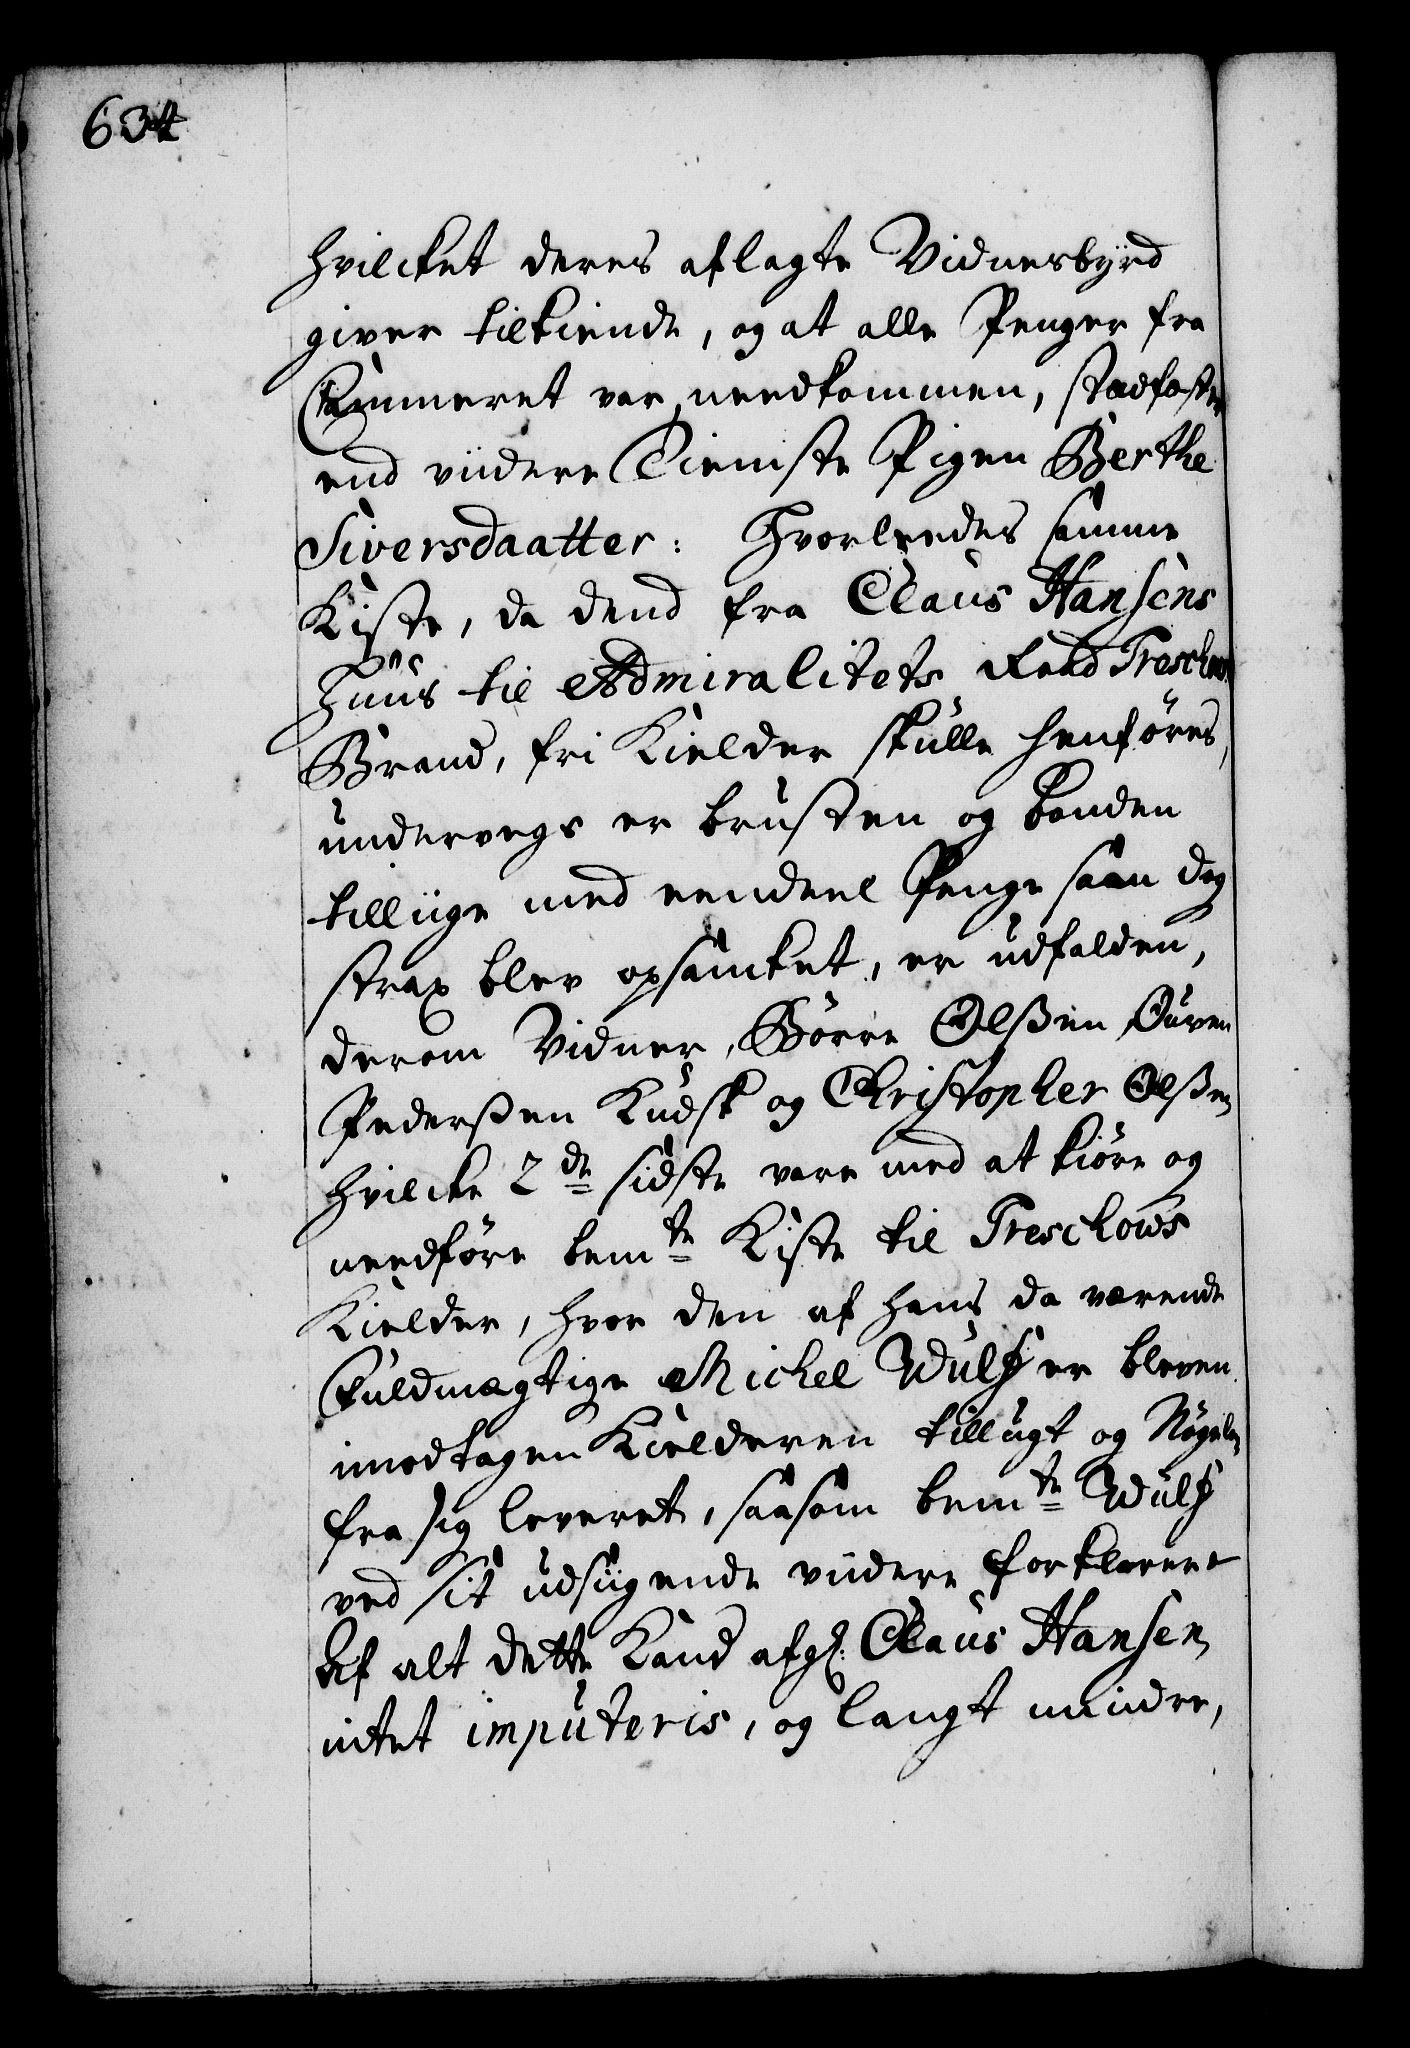 634
hvilcket deres aflagte Vidnesbyrd
giver tilkiende, og at alle Penger fra
Cammeret var needkommen, stadfæster
end viidere Tieniste Pigen Berthe
Siversdaatter: Hvorleedes samme
Kiste, da dend fra Claus Hansens
Huus til Admiralitets Raad Treschows
Brand, fri Kielder skulle henføres,
underveys er brusten og bonden
tilliige med eendeel Penge saan dog
strax blev opsancket, er udfalden,
derom Vidner, Børre Olßen Ouven
Pederßen Kudsk og Christopher Olßen
hvilcke 2de sidste vare med at kiøre og
needføre bemte Kiste til Treschows
Kielder, hvor den af hans da værende
Fuldmægtige Michel Wulf er bleven
imodtagen Kielderen tillugt og Nøgelen
fra sig leveret, saasom bemte Wulf
ved sit udsiigende viidere forklarer
Af alt dette kand afgl. Claus Hansen
intet imputeris, og langt mindre,